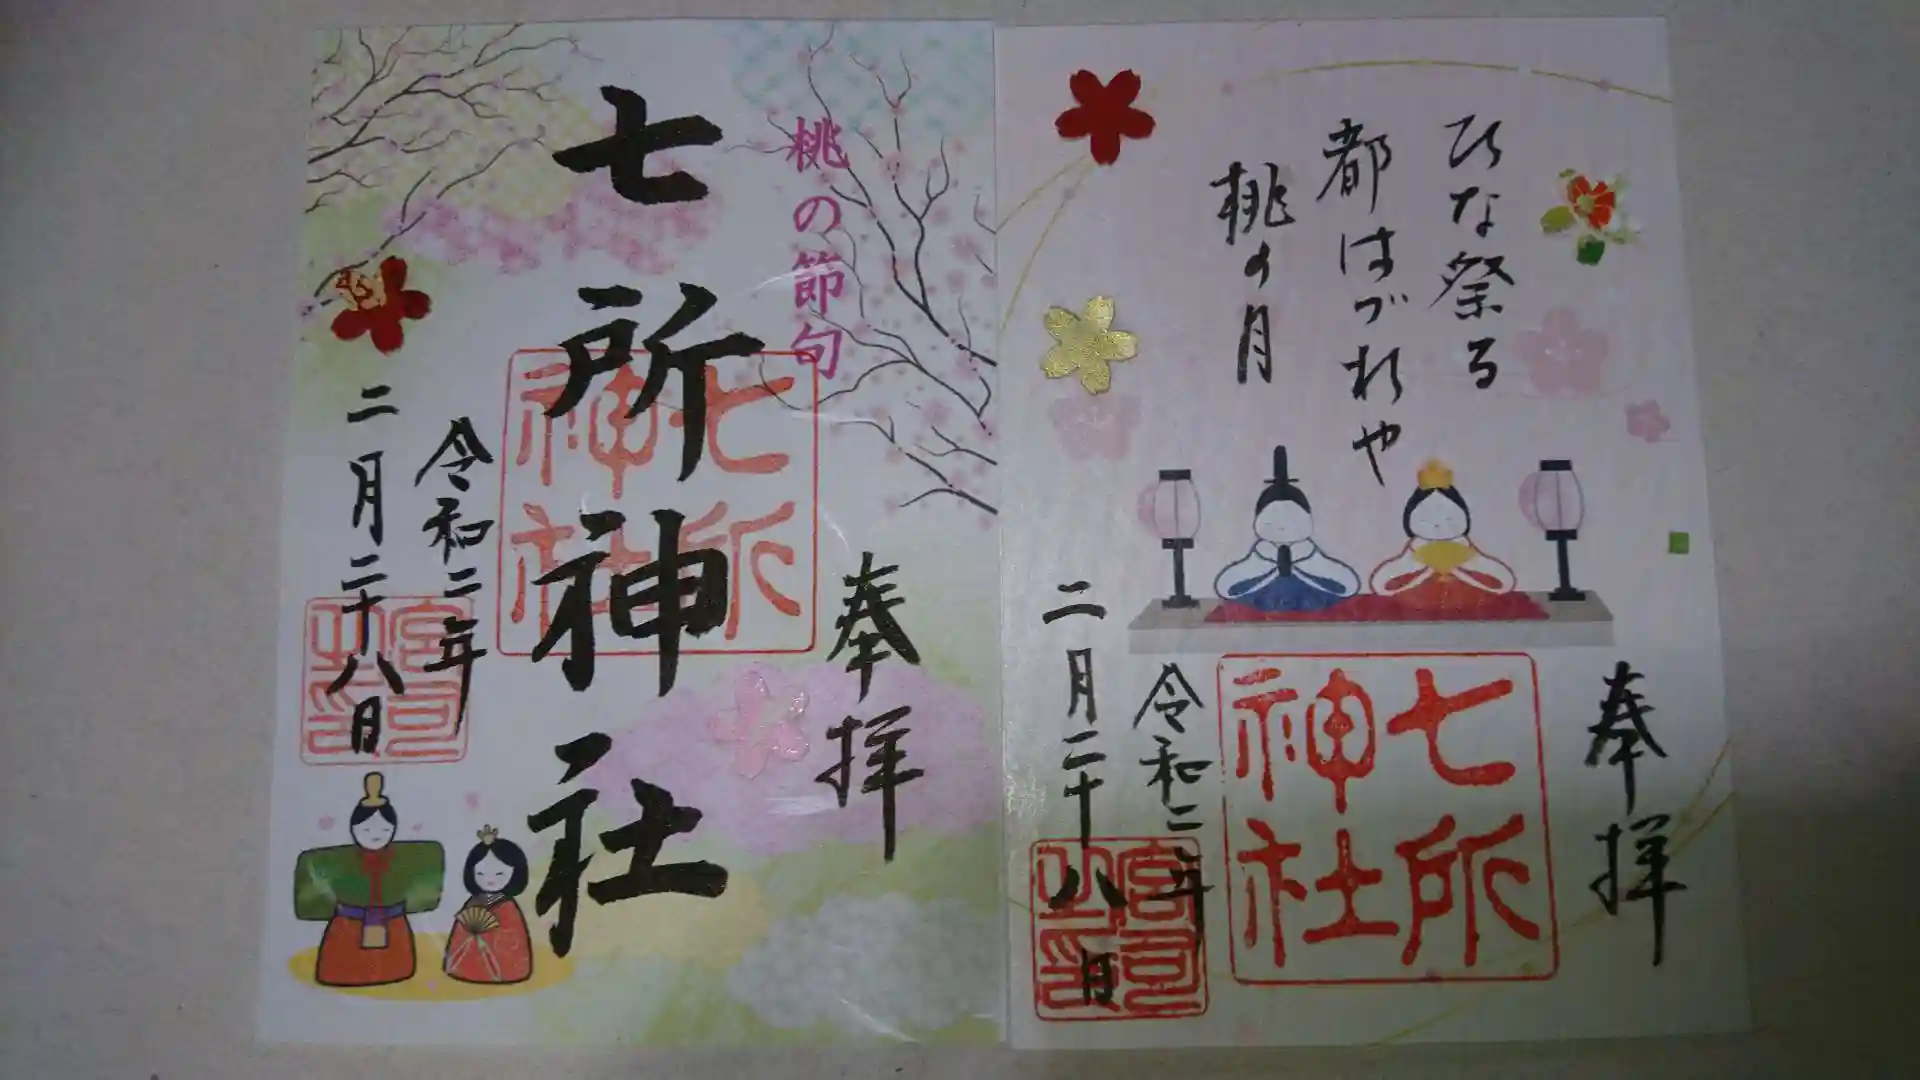 ひな祭る
都はづれや
桃の月
奉拝
七所神社
令和二年
二月二十八日
宮司之印
桃の節句
奉拝
七所神社
七所神社
令和二年
二月二十八日
宮司之印